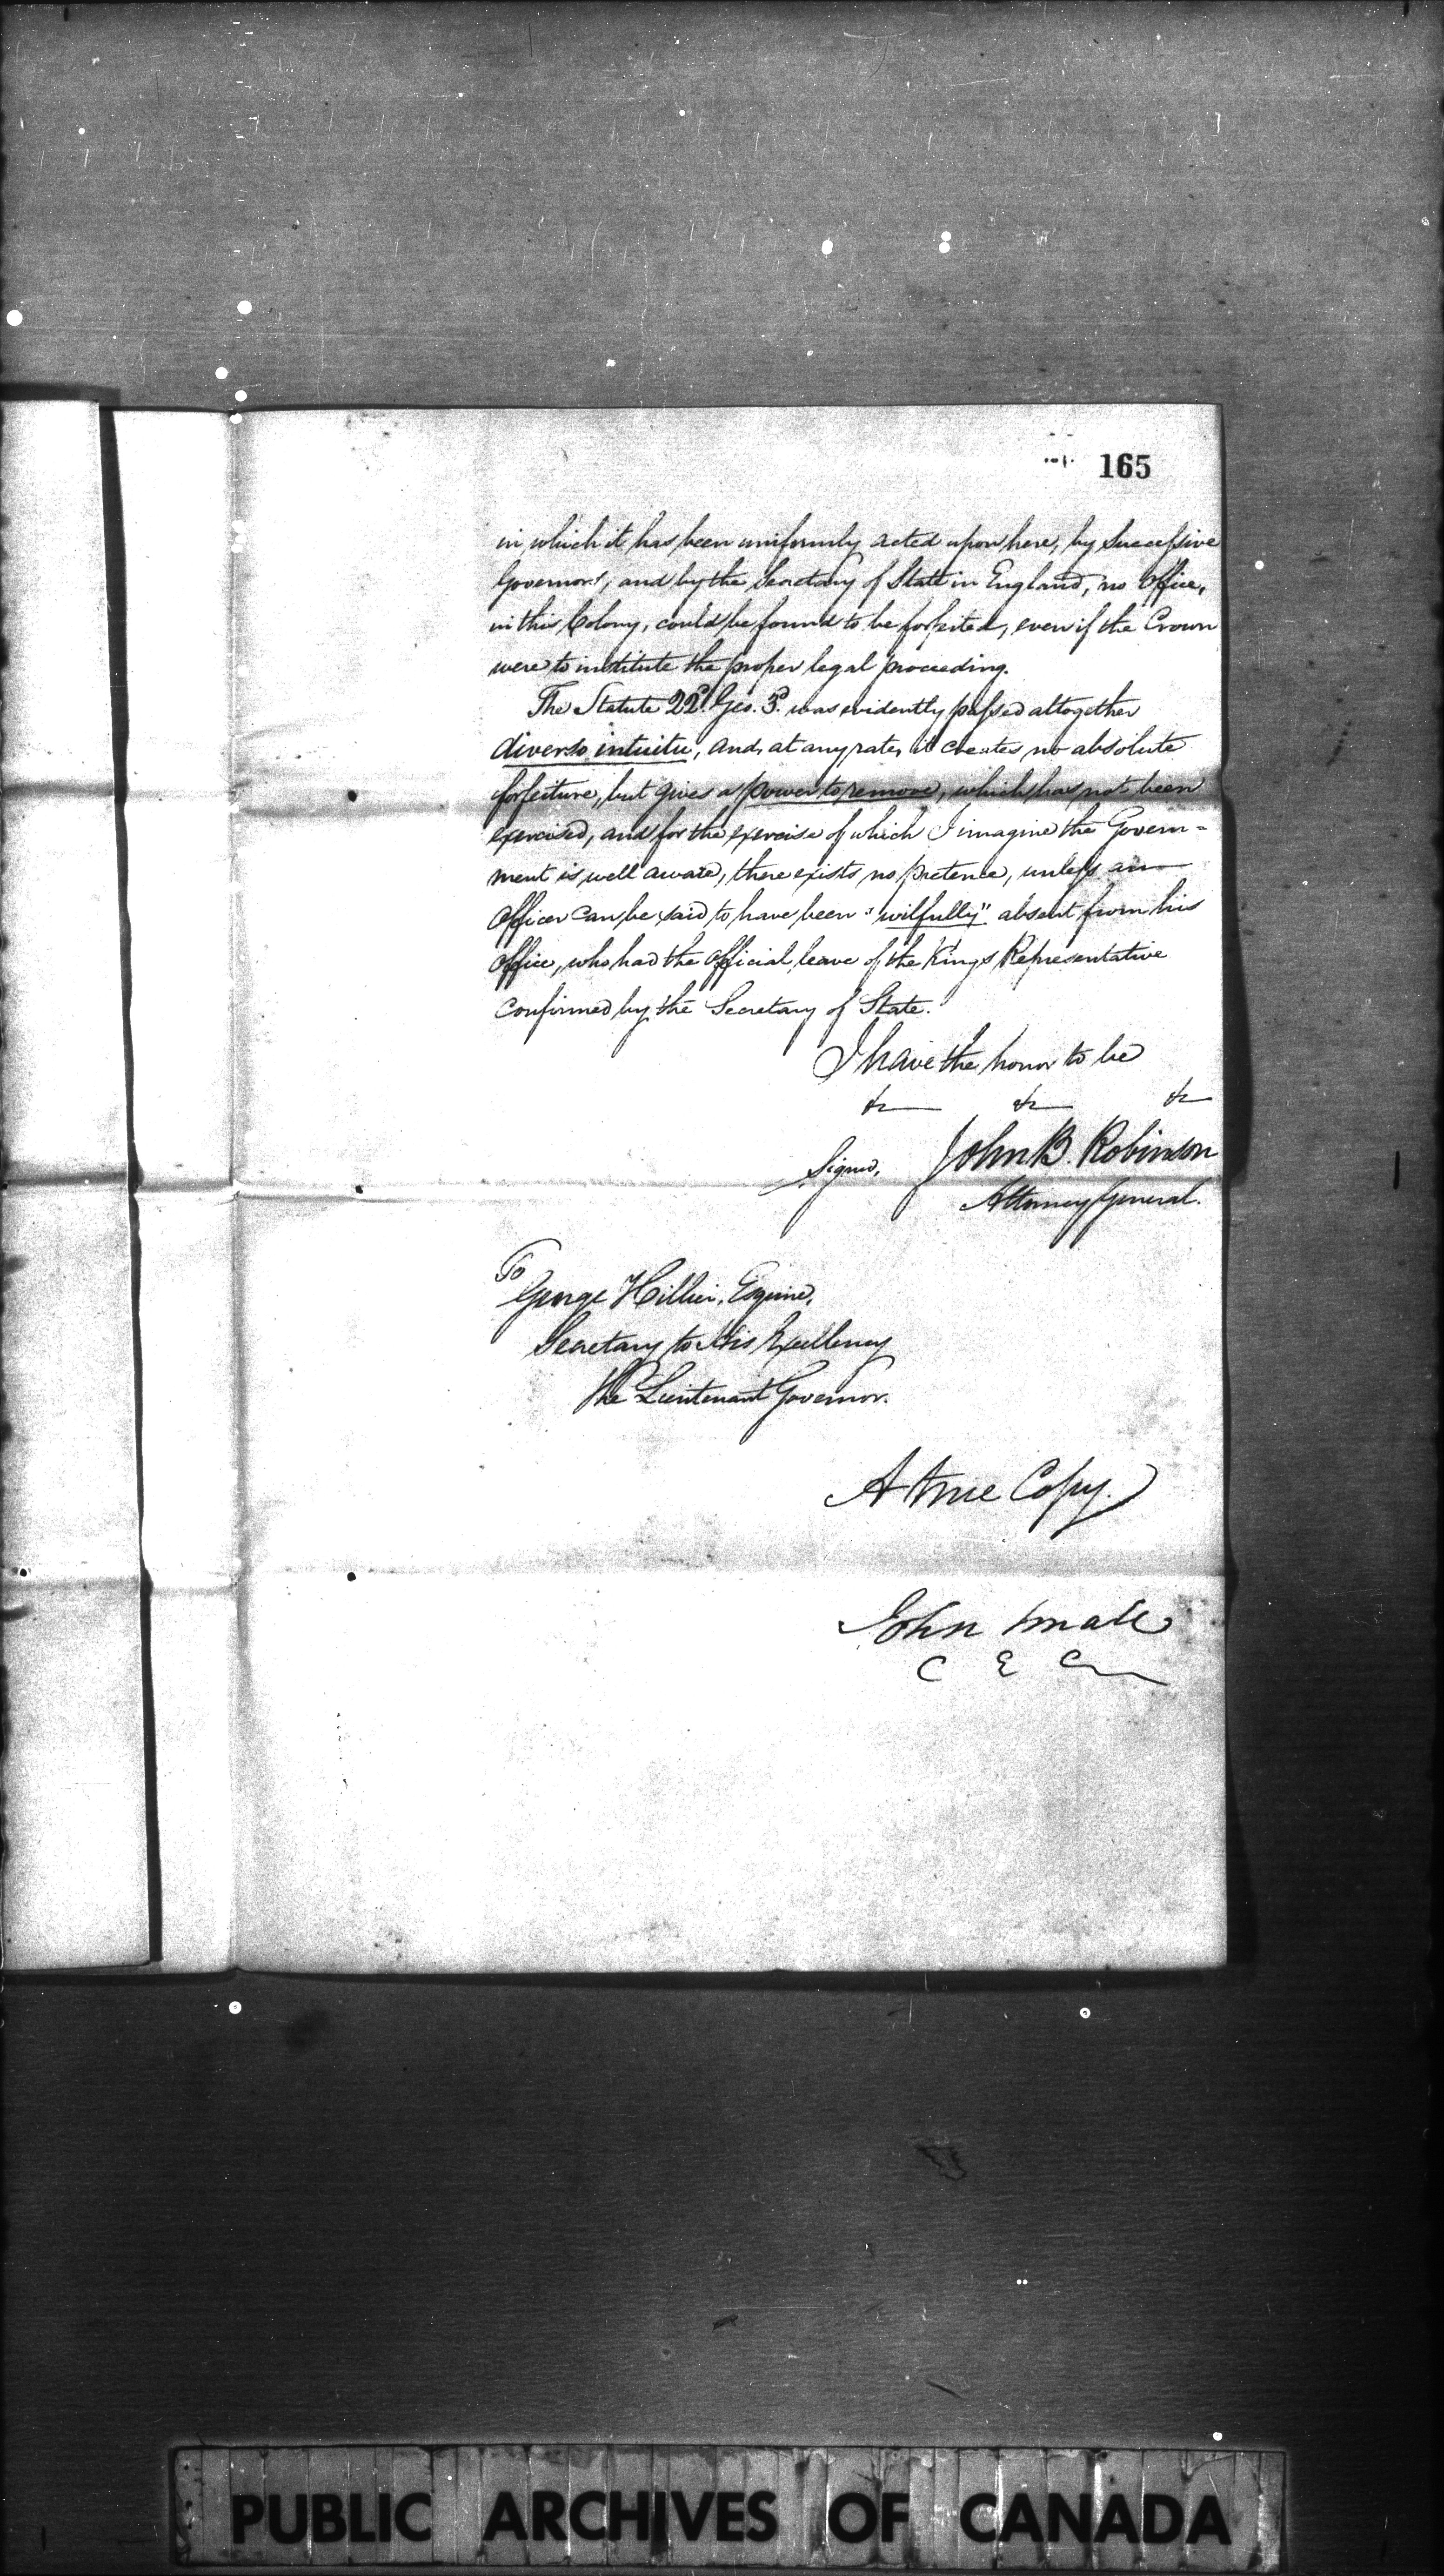 165
in which it has been uniformly acted upon here, by Successive
Governors, and by the Secretary of State in England, no Office,
in this Colony, could be found to be forfeited, even if the Crown
were to institute the proper legal proceeding.
The Statute 22d. Geo. 3d. was evidently passed altogether
diverso intuitu, and, at any rate, it creates no absolute
forfeiture, but gives a power to remove, which has not been
exercised, and for the exercise of which I imagine the Govern=
ment is well aware, there exists no pretence, unless an
Officer can be said to have been "wilfully" absent from his
Office, who had the Official leave of the King's Representative
confirmed by the Secretary of State.
I have the honor to be
&c &c &c
Signed, John B. Robinson
Attorney General.
To
George Hillier, Esquire,
Secretary to His Excellency
the Lieutenant Governor.
A true Copy.
John Small
C E C
PUBLIC ARCHIVES OF CANADA